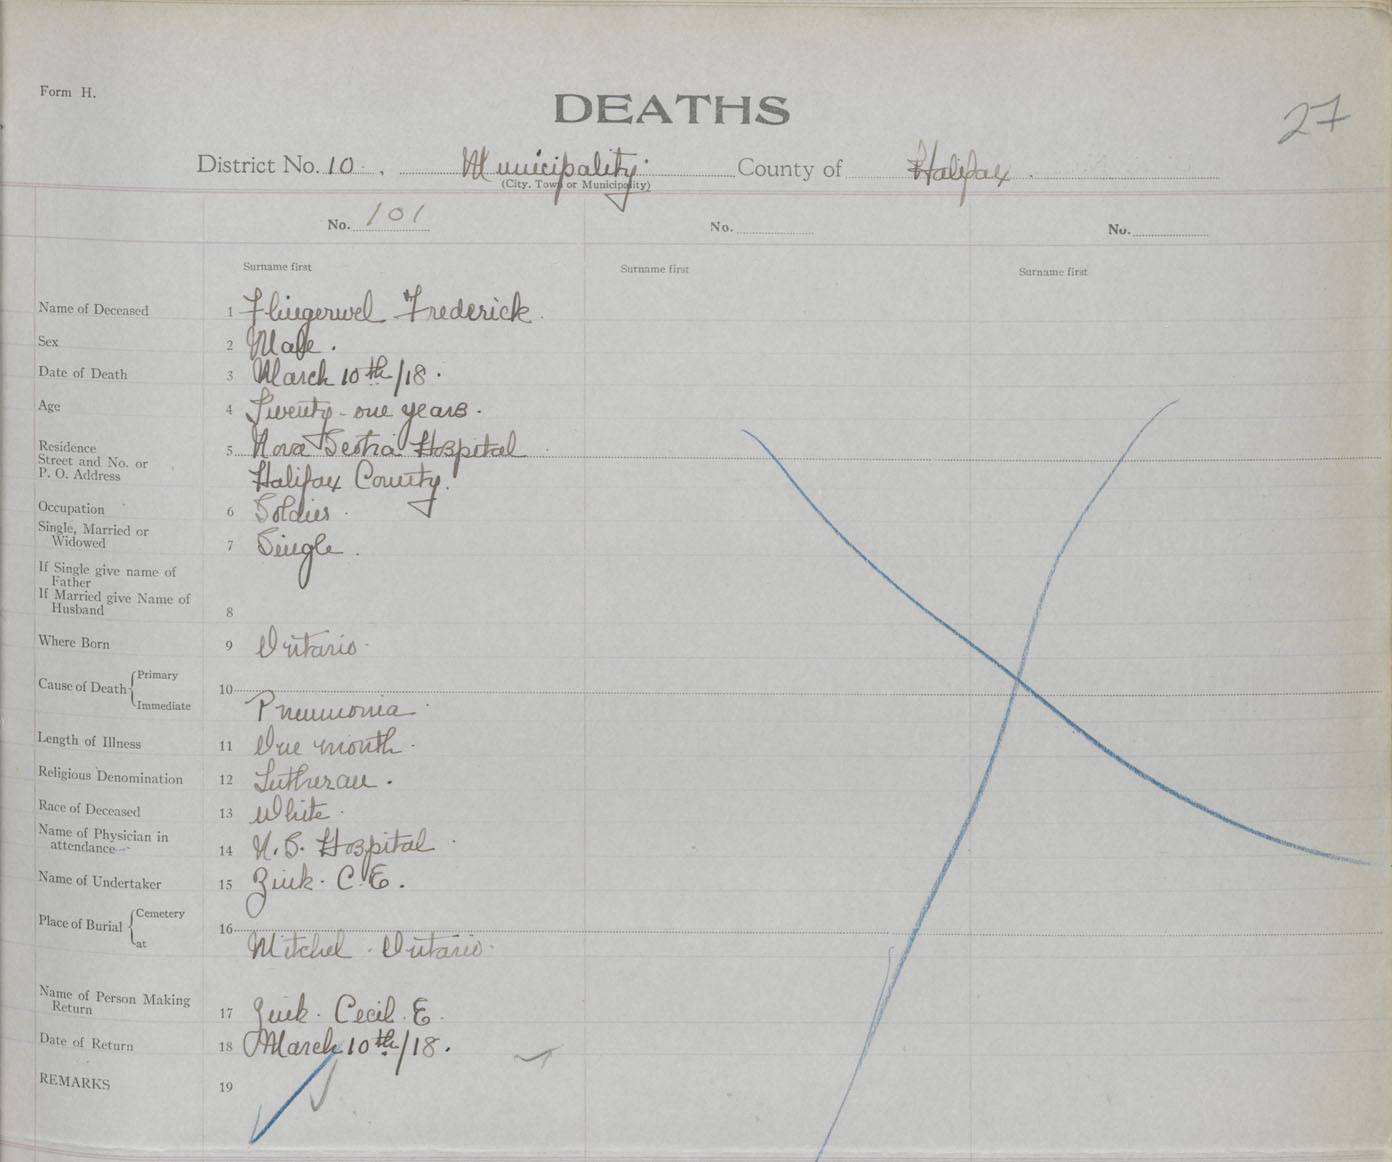 Form H.
DEATHS
27
District No. 10. , Municipality. County of Halifax.
(City, Town or Municipality)
No. 101 No. No.
Surname first Surname first Surname first
Name of Deceased 1 Frederick
Sex 2 Male.
Date of Death 3 March 10th/18.
Age 4 Twenty-one years.
Residence 5 Nova Scotia Hospital
Street and No. or
P. O. Address Halifax County.
Occupation 6 Soldier.
Single, Married or
Widowed 7 Single.
If Single give name of
Father
If Married give Name of
Husband 8
Where Born 9 Ontario.
Cause of Death Primary 10
Immediate Pneumonia.
Length of Illness 11 One month.
Religious Denomination 12 Lutheran.
Race of Deceased 13 White.
Name of Physician in
attendance 14 N. S. Hospital.
Name of Undertaker 15 Zink. C. E.
Place of Burial Cemetery 16
at Mitchel. Ontario.
Name of Person Making
Return 17 Zink. Cecil. E.
Date of Return 18 March 10th/18.
REMARKS 19